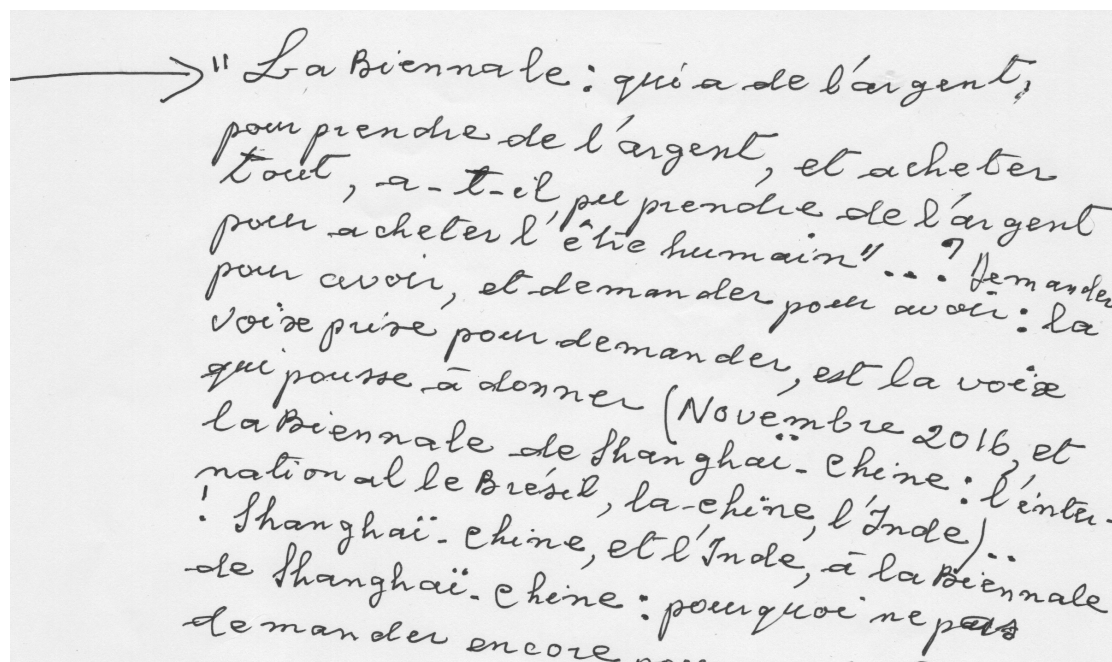 → " La Biennale : qui a de l'argent,
pour prendre de l'argent, et acheter
tout, a-t-il pu prendre de l'argent
pour acheter l'être humain"...? Demander
pour avoir, et demander pour avoir : la
voix prise pour demander, est la voix
qui pousse à donner (Novembre 2016, et
la Biennale de Shanghaï-Chine : l'inter-
national le Brésil, la-Chine, l'Inde)..
! Shanghaï-Chine, et l'Inde, à la Biennale
de Shanghaï-Chine : pourquoi ne pas
demander encore